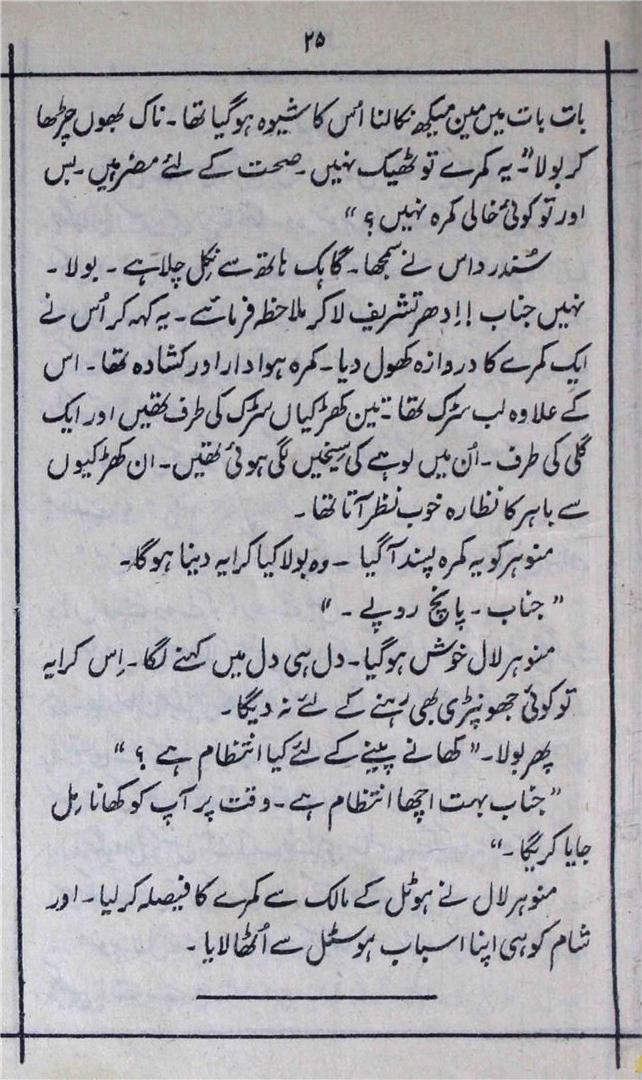 ۲۵
بات بات میں مین میکھ نکالنا اُس کا شیوہ ہوگیا تھا۔ ناک بھوں چڑھا
کر بولا "۔ یہ کمرے تو ٹھیک نہیں۔ صحت کے لئے مضر ہیں۔ بس
اور تو کوئی خالی کمرہ نہیں؟ "
سُندر داس نے سمجھا۔ گاہک ہاتھ سے نکل چلا ہے۔ بولا۔
نہیں جناب !! اِدھر تشریف لا کر ملاحظہ فرمائے۔ یہ کہہ کر اُس نے
ایک کمرے کا دروازہ کھول دیا۔ کمرہ ہوادار اور کشادہ تھا۔ اس
کے علاوہ لب سڑک تھا۔ تین کھڑکیاں سڑک کی طرف تھیں اور ایک
گلی کی طرف۔ اُن میں لوہے کی سیخیں لگی ہوئی تھیں۔ ان کھڑکیوں
سے باہر کا نظارہ خوب نظر آتا تھا۔
منوہر کو یہ کمرہ پسند آگیا ۔ وہ بولا کیا کرایہ دینا ہوگا۔
" جناب ۔ پانچ روپے ۔ "
منوہر لال خوش ہوگیا۔ دل ہی دل میں کہنے لگا۔ اِس کرایہ
تو کوئی جھونپڑی بھی رہنے کے لئے نہ دیگا۔
پھر بولا۔ " کھانے پینے کے لئے کیا انتظام ہے ؟ "
" جناب بہت اچھا انتظام ہے۔ وقت پر آپ کو کھانا مِل
جایا کریگا۔ "
منوہر لال نے ہوٹل کے مالک سے کمرے کا فیصلہ کر لیا۔ اور
شام کو ہی اپنا اسباب ہوسٹل سے اُٹھا لایا۔